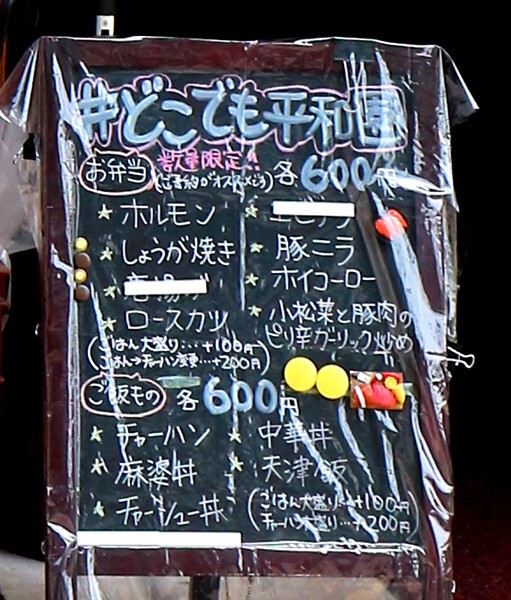 #どこでも平和園
お弁当 数量限定 各600円
(ご予約がオススメです)
★ホルモン
★しょうが焼き
★ロースカツ
(ごはん大盛り…+100円
ごはん→チャーハン変更…+200円)
★豚ニラ
★ホイコーロー
★小松菜と豚肉の
ピリ辛ガーリック炒め
ご飯もの 各600円
★チャーハン
★麻婆丼
★チャーシュー丼
★中華丼
★天津飯
(ごはん大盛り…+100円
チャーハン大盛り…+200円)